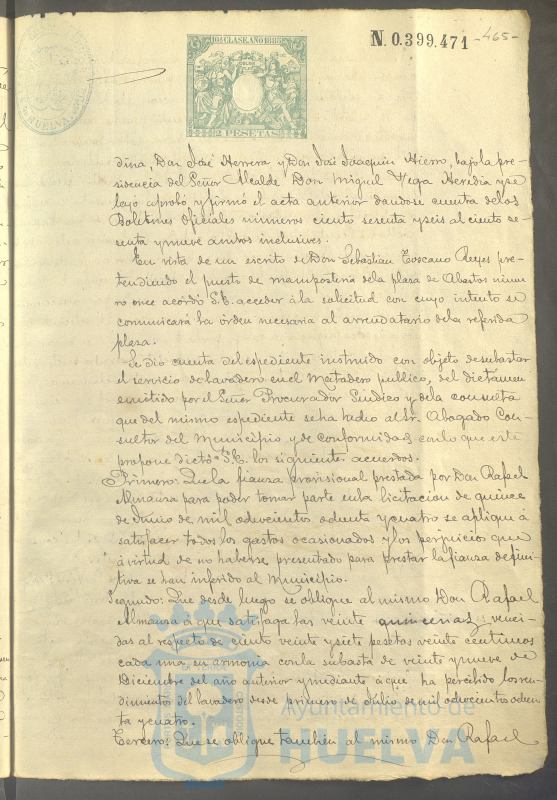 10ª CLASE. AÑO 1885
2 PESETAS
N. 0.399.471 -465-
HUELVA
dina, Don José Herrera y Don José Joaquin Hierro, bajo la pre-
sidencia del Señor Alcalde Don Miguel Vega Heredia y se
leyo aprobó y firmó el acta anterior dandose cuenta de los
Boletines Oficiales números ciento sesenta y seis al ciento se-
senta y nueve ambos inclusives.
En vista de un escrito de Don Sebastian Toscano Reyes pre-
tendiendo el puesto de mamposteria de la plaza de Abastos núme-
ro once acordó S.E. acceder á la solicitud con cuyo intento se
comunicará la órden necesaria al arrendatario de la referida
plaza.
Se dió cuenta del espediente instruido con objeto de subastar
el servicio de lavadero en el Matadero publico, del dictamen
emitido por el Señor Procurador Sindico y de la consulta
que del mismo espediente se ha hecho al Sr. Abogado Con-
sultor del Municipio y de conformidad con lo que este
propone dictó S.E. los siguientes acuerdos.
Primero: Que la fianza provisional prestada por Don Rafael
Almansa para poder tomar parte en la licitacion de quince
de Junio de mil ochocientos ochenta y cuatro se aplique á
satisfacer todos los gastos ocasionados y los perjuicios que
á virtud de no haberse presentado para prestar la fianza defini-
tiva se han inferido al Municipio.
Segundo: Que desde luego se oblique al mismo Don Rafael
Almansa á que satisfaga las veinte quincenas venci-
das al respecto de ciento veinte y siete pesetas veinte centimos
cada una en armonia con la subasta de veinte y nueve de
Diciembre del año anterior y mediante á que ha percibido los ren-
dimientos del lavadero desde primero de Julio de mil ochocientos ochen-
ta y cuatro.
Tercero: Que se oblique tambien al mismo Don Rafael
Ayuntamiento de
HUELVA